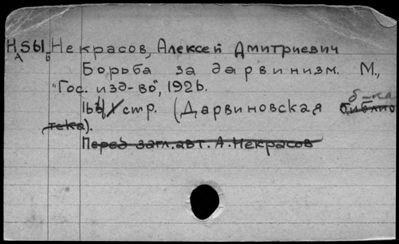 H561 Некрасов, Алексей Дмитриевич
А
Борьба за дарвинизм. М.,
"Гос. изд-во", 1926.
стр. (Дарвиновская б-ка
библио
тека).
Перед загл. авт. А. Некрасов